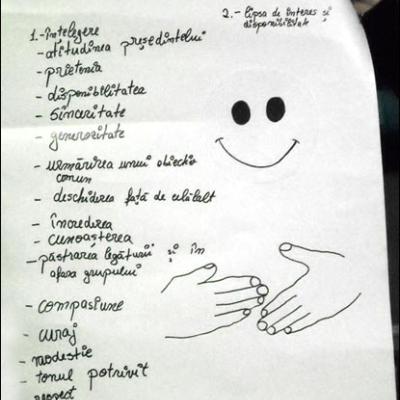 1.-întelegere
- atitudinea președintelui
- prietenia
- disponibilitatea
- sinceritate
- generozitate
- urmărirea unui obiectiv
comun
- deschiderea față de celălalt
- încrederea
- cunoasterea
- păstrarea legăturii și în
afara grupului
- compasiune
- curaj
- modestie
- tonul potrivit
respect
2.- lipsa de interes și
disponibilitate